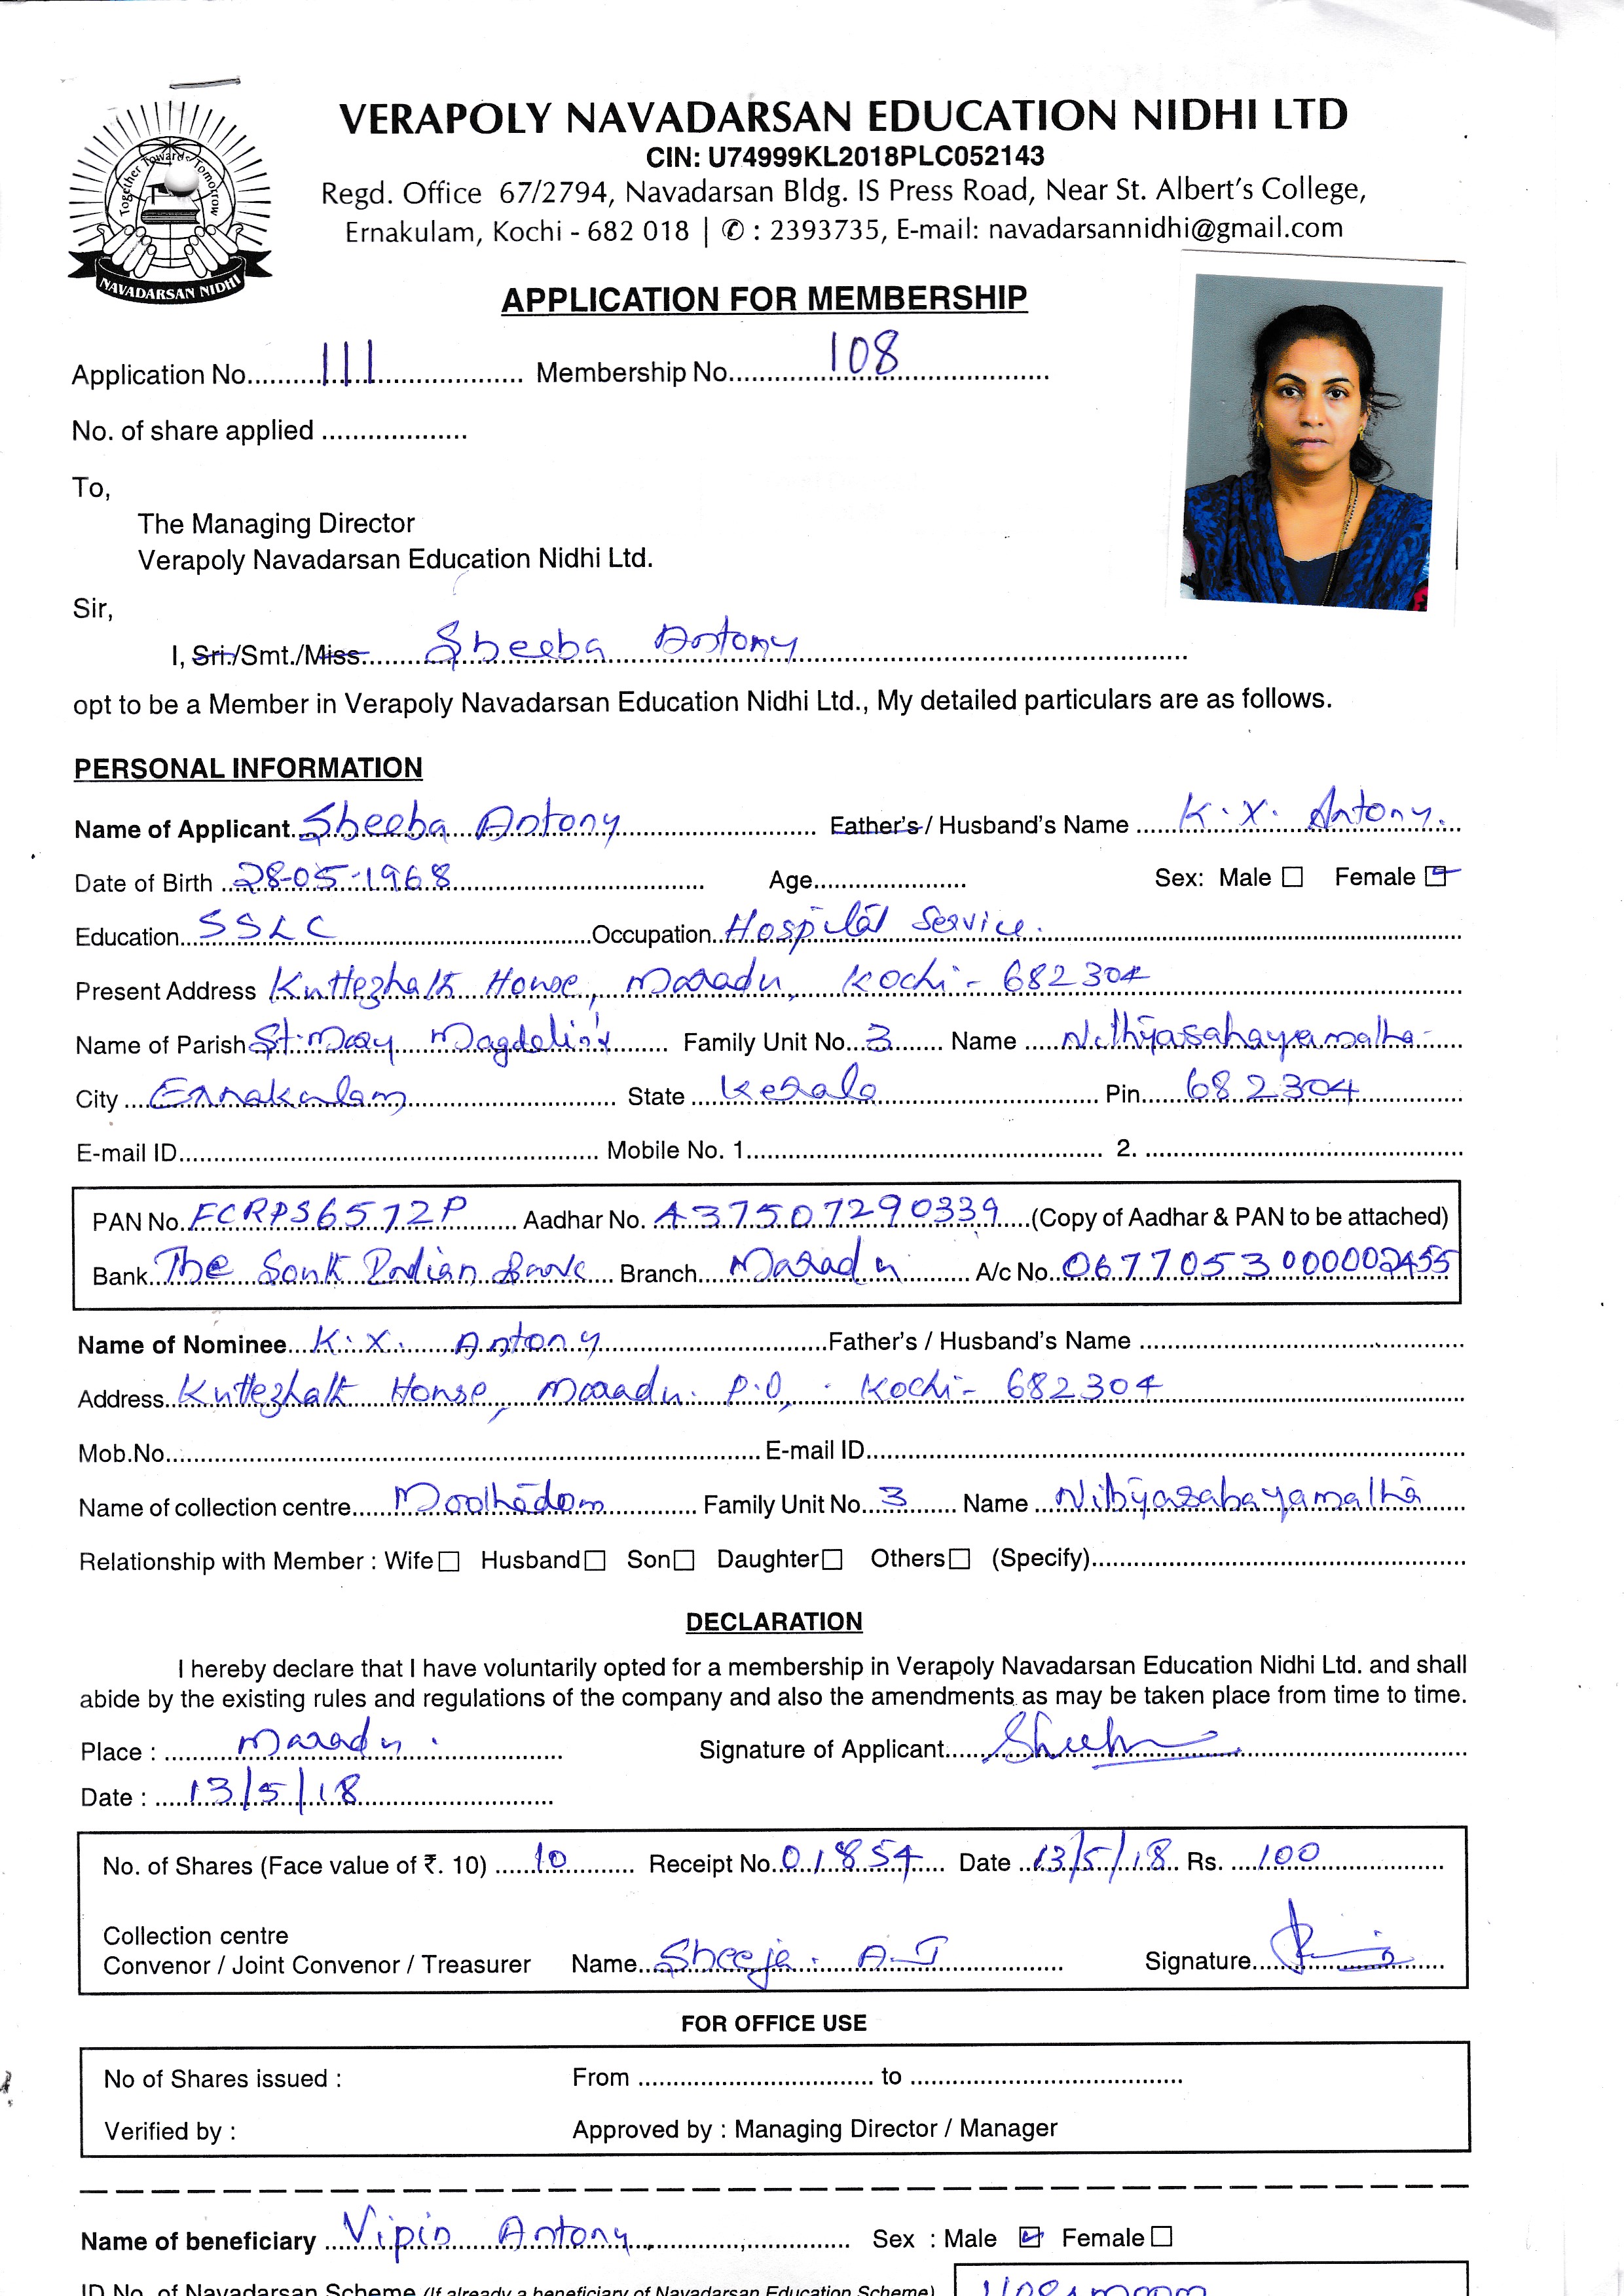 Together Towards Tomorrow
NAVADARSAN NIDHI
VERAPOLY NAVADARSAN EDUCATION NIDHI LTD
CIN: U74999KL2018PLC052143
Regd. Office 67/2794, Navadarsan Bldg. IS Press Road, Near St. Albert's College,
Ernakulam, Kochi - 682 018 | ✆ : 2393735, E-mail: navadarsannidhi@gmail.com
APPLICATION FOR MEMBERSHIP
Application No. 111 Membership No. 108
No. of share applied
To,
The Managing Director
Verapoly Navadarsan Education Nidhi Ltd.
Sir,
I, Sri./Smt./Miss. Sheeba Antony
opt to be a Member in Verapoly Navadarsan Education Nidhi Ltd., My detailed particulars are as follows.
PERSONAL INFORMATION
Name of Applicant Sheeba Antony Father's / Husband's Name K.X. Antony.
Date of Birth 28-05-1968 Age Sex: Male ☐ Female ☑
Education SSLC Occupation Hospital Service.
Present Address Kuttezhath House, Maradu, Kochi - 682304
Name of Parish St. Mary Magdelin's Family Unit No. 3 Name Nithyasahayamatha
City Ernakulam State Kerala Pin 682304
E-mail ID Mobile No. 1 2.
PAN No. FCRPS6572P Aadhar No. A37507290339 (Copy of Aadhar & PAN to be attached)
Bank The South Indian Bank Branch Maradu A/c No. 0677053000002455
Name of Nominee K.X. Antony Father's / Husband's Name
Address Kuttezhath House, Maradu. P.O, Kochi - 682304
Mob.No. E-mail ID
Name of collection centre Moolhedom Family Unit No. 3 Name Nithyasahayamatha
Relationship with Member : Wife ☐ Husband ☐ Son ☐ Daughter ☐ Others ☐ (Specify)
DECLARATION
I hereby declare that I have voluntarily opted for a membership in Verapoly Navadarsan Education Nidhi Ltd. and shall
abide by the existing rules and regulations of the company and also the amendments as may be taken place from time to time.
Place : Maradu. Signature of Applicant Sheeba
Date : 13/5/18
No. of Shares (Face value of ₹. 10) 10 Receipt No. 01854 Date 13/5/18 Rs. 100
Collection centre
Convenor / Joint Convenor / Treasurer Name Sheeja. A.J Signature
FOR OFFICE USE
No of Shares issued : From to
Verified by : Approved by : Managing Director / Manager
Name of beneficiary Vipin Antony Sex : Male ☑ Female ☐
ID No. of Navadarsan Scheme (If already a beneficiary of Navadarsan Education Scheme)